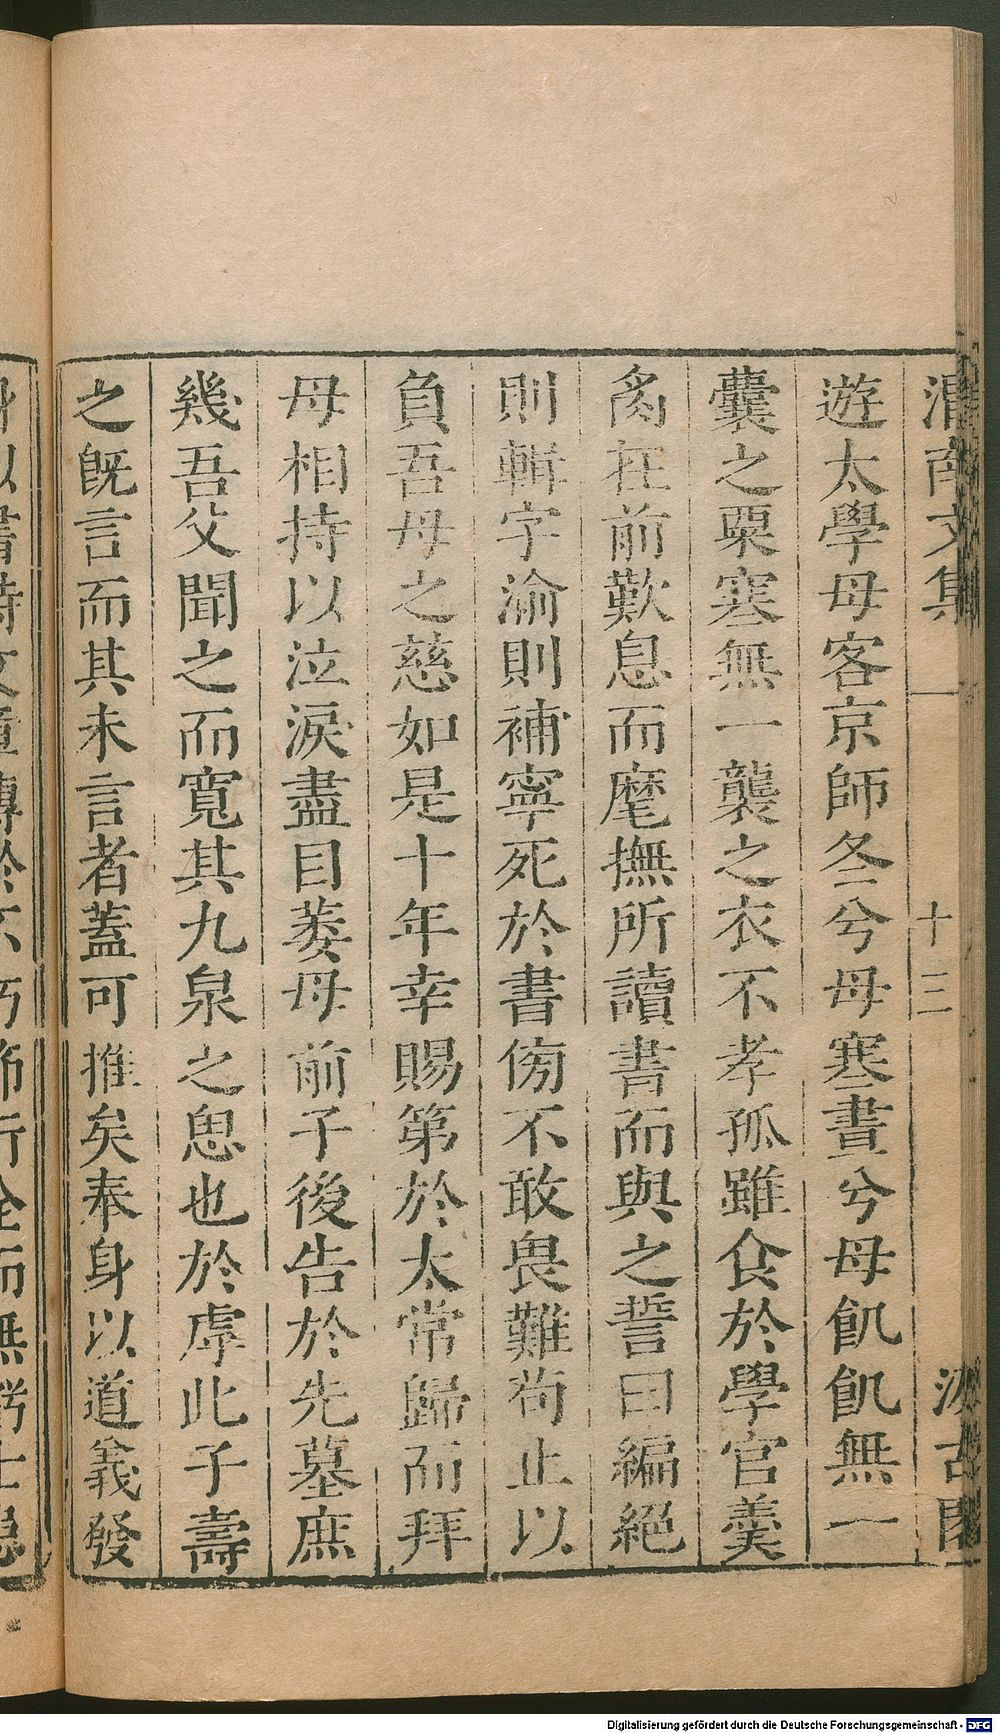 渭南文集 十三 汲古閣
遊太學母客京師冬兮母寒晝兮母飢飢無一
囊之粟寒無一襲之衣不孝孤雖食於學官羹
胾在前歎息而麾撫所讀書而與之誓曰編絕
則輯字渝則補寧死於書傍不敢畏難苟止以
負吾母之慈如是十年幸賜第於太常歸而拜
母相持以泣淚盡目萎母前子後告於先墓庶
幾吾父聞之而寬其九泉之思也於虖此子壽
之旣言而其未言者蓋可推矣奉身以道義發
Digitalisierung gefördert durch die Deutsche Forschungsgemeinschaft - DFG